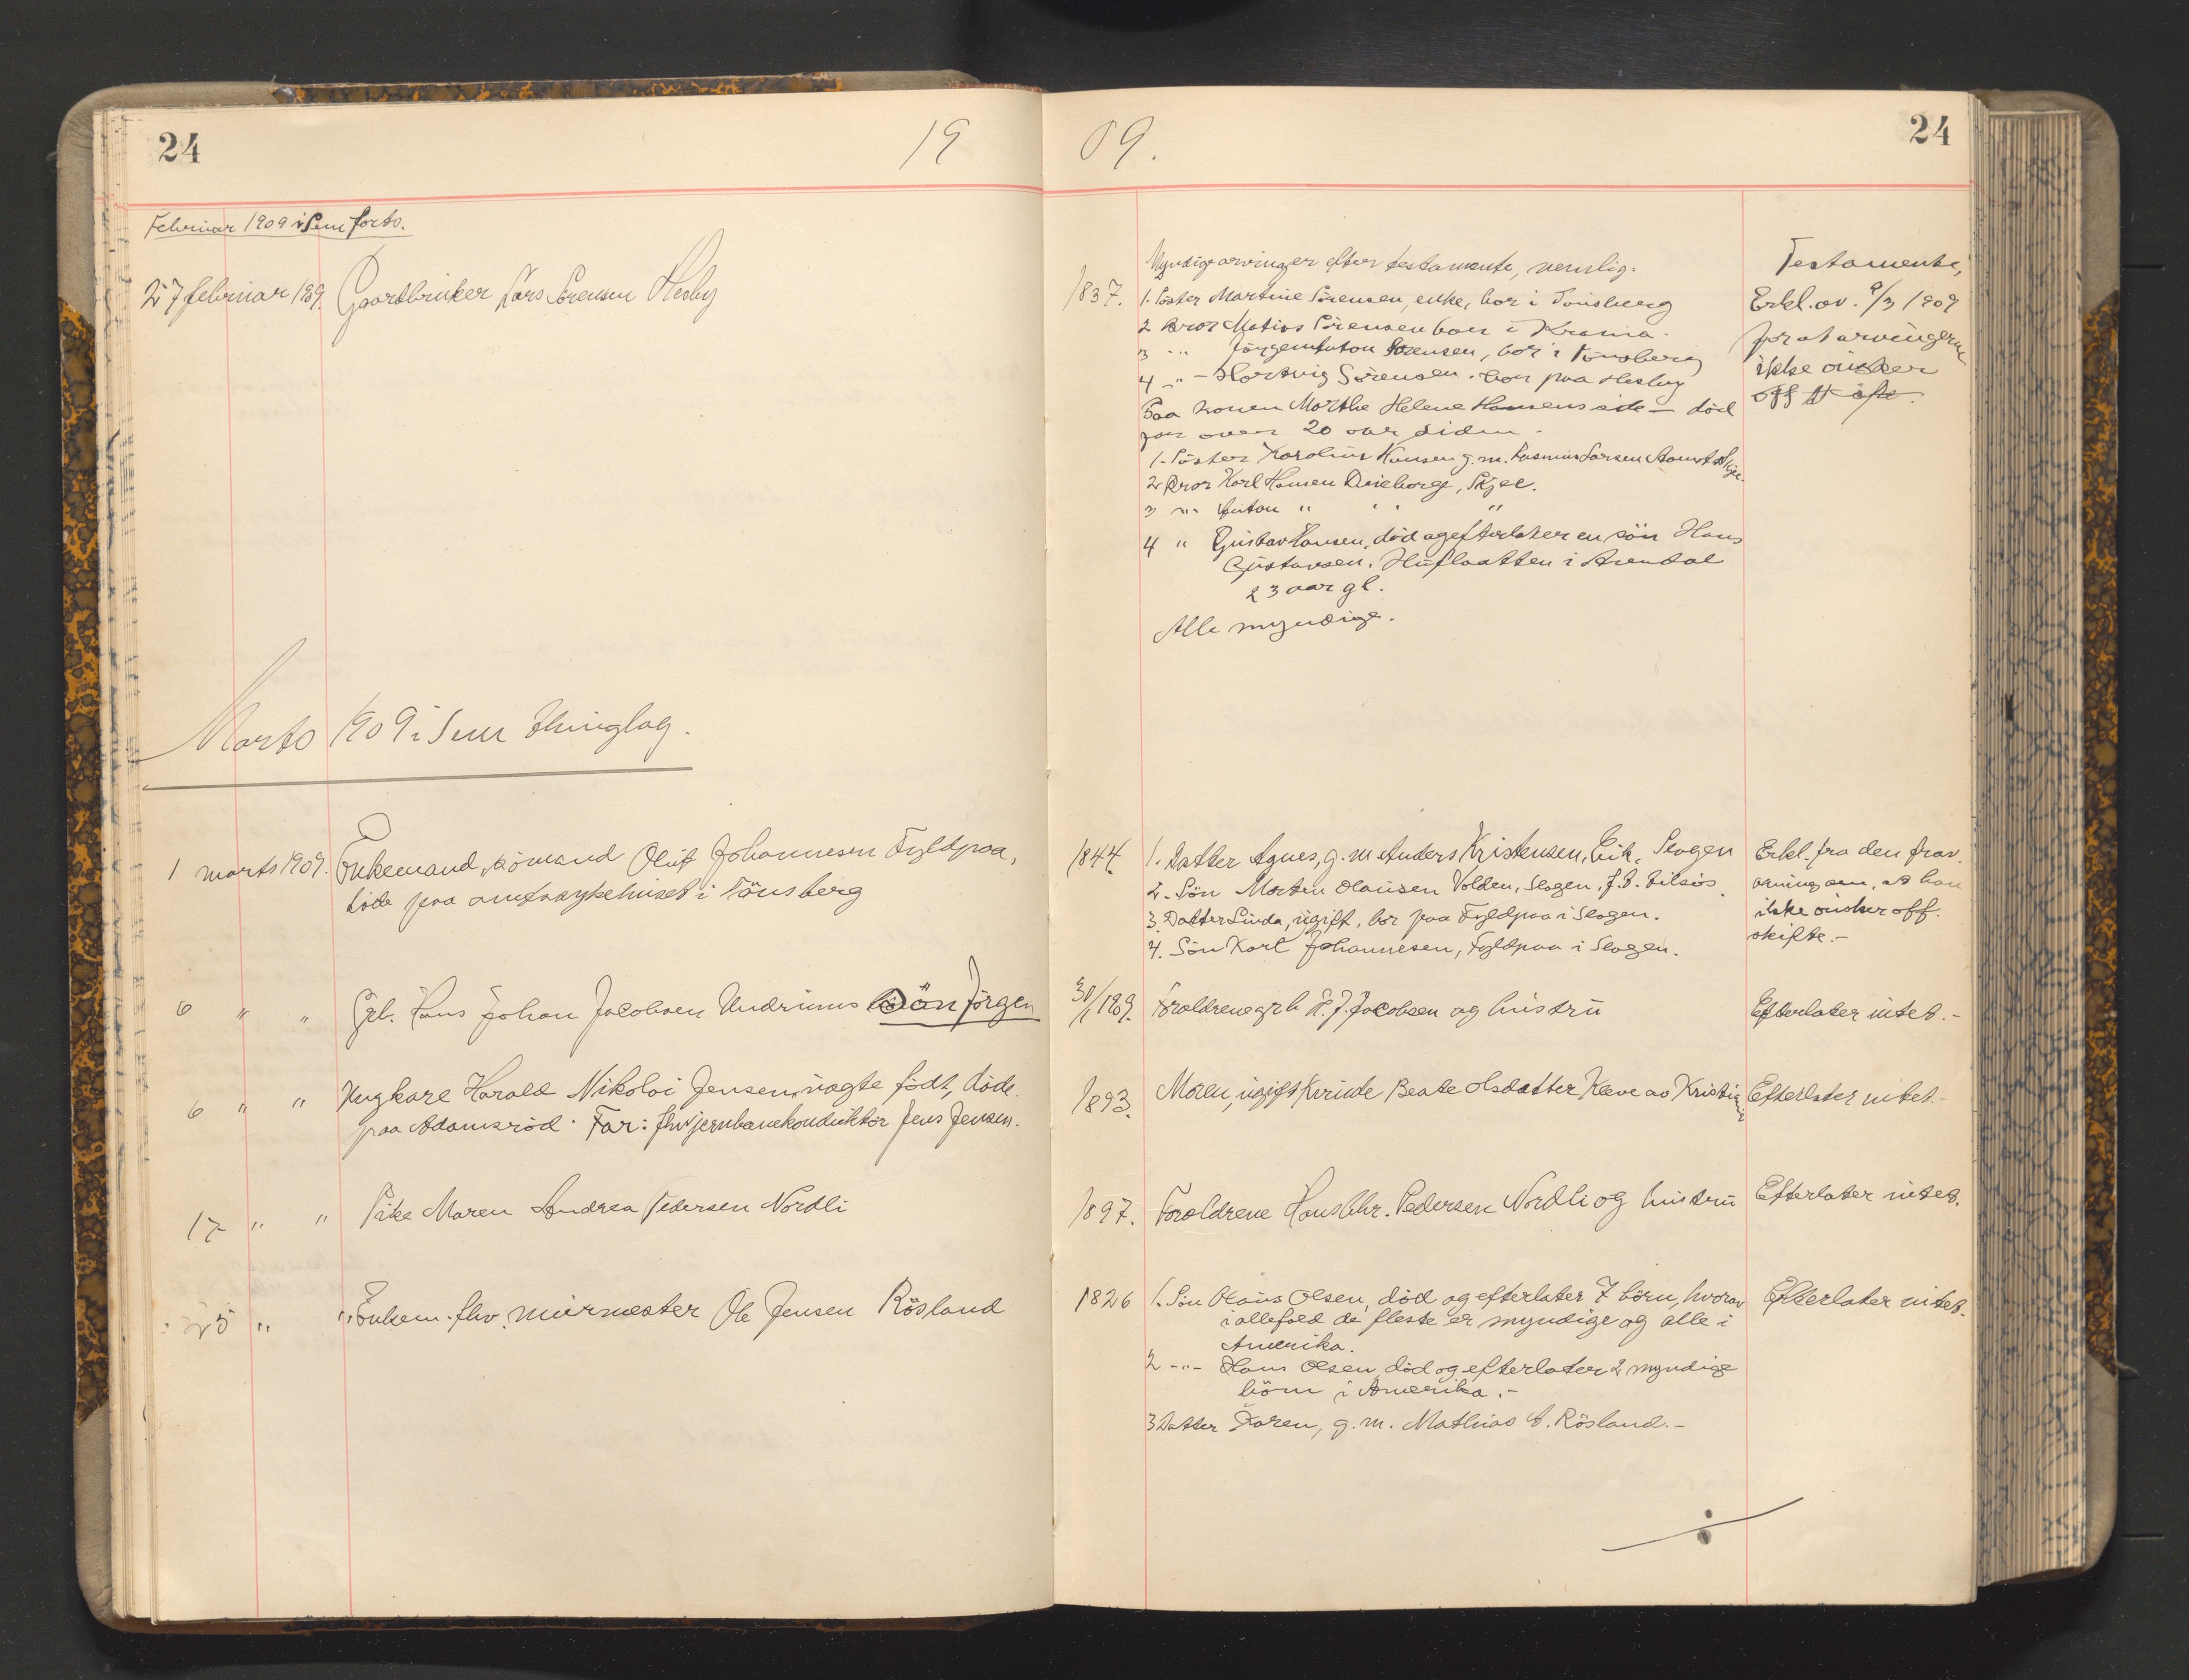 24
19
09.
24
Februar 1909 i Sem forts.
27 februar 1909. Gaardbruker Lars Sørensen Hesby
1837.
Myndige arvinger efter testamente, nemlig:
1. Søster Martine Sørensen, enke, bor i Tønsberg
2 Bror Matias Sörensen bor i Krania.
3 -"- Jörgen Anton Sørensen, bor i Tønsberg
4 -"- Hartvig Sörensen. bor paa Hesby
Paa konen Marthe Helene Hansens side — död
for over 20 aar siden.
1. Söster Karoline Hansen g.m. Rasmus Larsen
2 Bror Karl Hansen Dueborge, Skjee.
3 -"- Anton " " "
4 " Gustav Hansen, död og efterlater en sön Hans
Gustavsen. Huflaatten i Arendal
23 aar gl.
Alle myndige.
Testamente,
Erkl. av. 9/3 1909
for at arvingerne
ikke önsker
off
Marts 1909 i Sem Thinglag.
1 marts 1909. Enkemand, sömand Oluf Johannesen Fyldpaa,
döde paa amtssykehuset i Tönsberg
1844.
1. Datter Agnes, g. m Anders Kristensen, Eik, Slagen
2. Sön Morten Olausen Volden, Slagen, f. t. tilsjös.
3. Datter Linda, ugift, bor paa Fyldpaa i Slagen.
4. Sön Karl Johannesen, Fyldpaa i Slagen.
Erkl. fra den frav.
arving om, at han
ikke önsker off.
skifte.-
6 " " Grb. Hans Johan Jacobsen Undrums sön Jörgen
30/1 1909.
Foraldrene grb H. J. Jacobsen og hustru
Efterlater intet.-
6 " " Ungkare Harald Nikolai Jensen, uagte födt, döde
paa Adamsröd. Far: fhv jernbanekonduktör Jens Jensen.
1893.
Moren, ugift kvinde Beate Olsdatter Kleve av Kristiania
Efterlater intet.-
17 " " Pike Maren Andrea Pedersen Nordli
1897.
Foraldrene Hans Chr. Pedersen Nordli og hustru
Efterlater intet.
25 " " Enkem. fhv. murmester Ole Jensen Rösland
1826
1. Sön Olaus Olsen, död og efterlater 7 börn, hvorav
iallefald de fleste er myndige og alle i
Amerika.
2 -"- Hans Olsen död og efterlater 2 myndige
börn i Amerika.-
3 Datter Karen, g. m. Mathias A. Rösland.-
Efterlater intet.